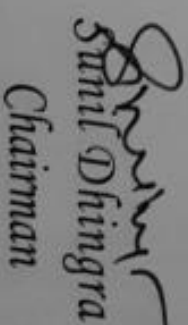 Sunil Dhingra
Chairman